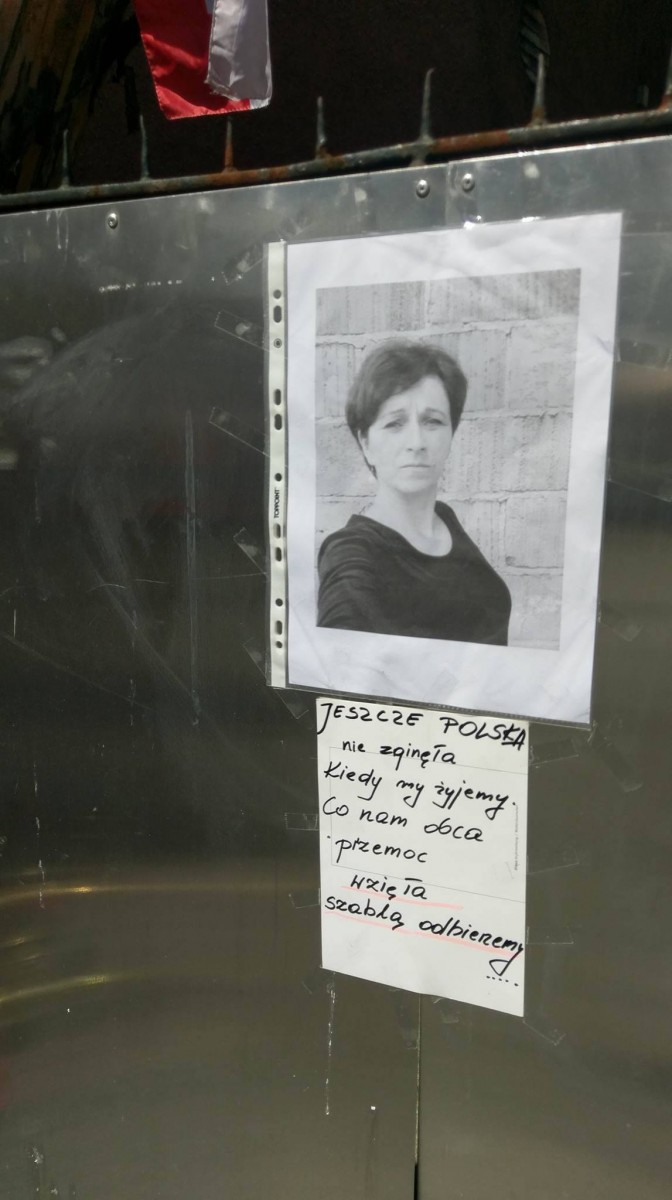 TOPPOINT
JESZCZE POLSKA
nie zginęła
Kiedy my żyjemy.
Co nam obca
przemoc
wzięła
szablą odbierzemy
.....